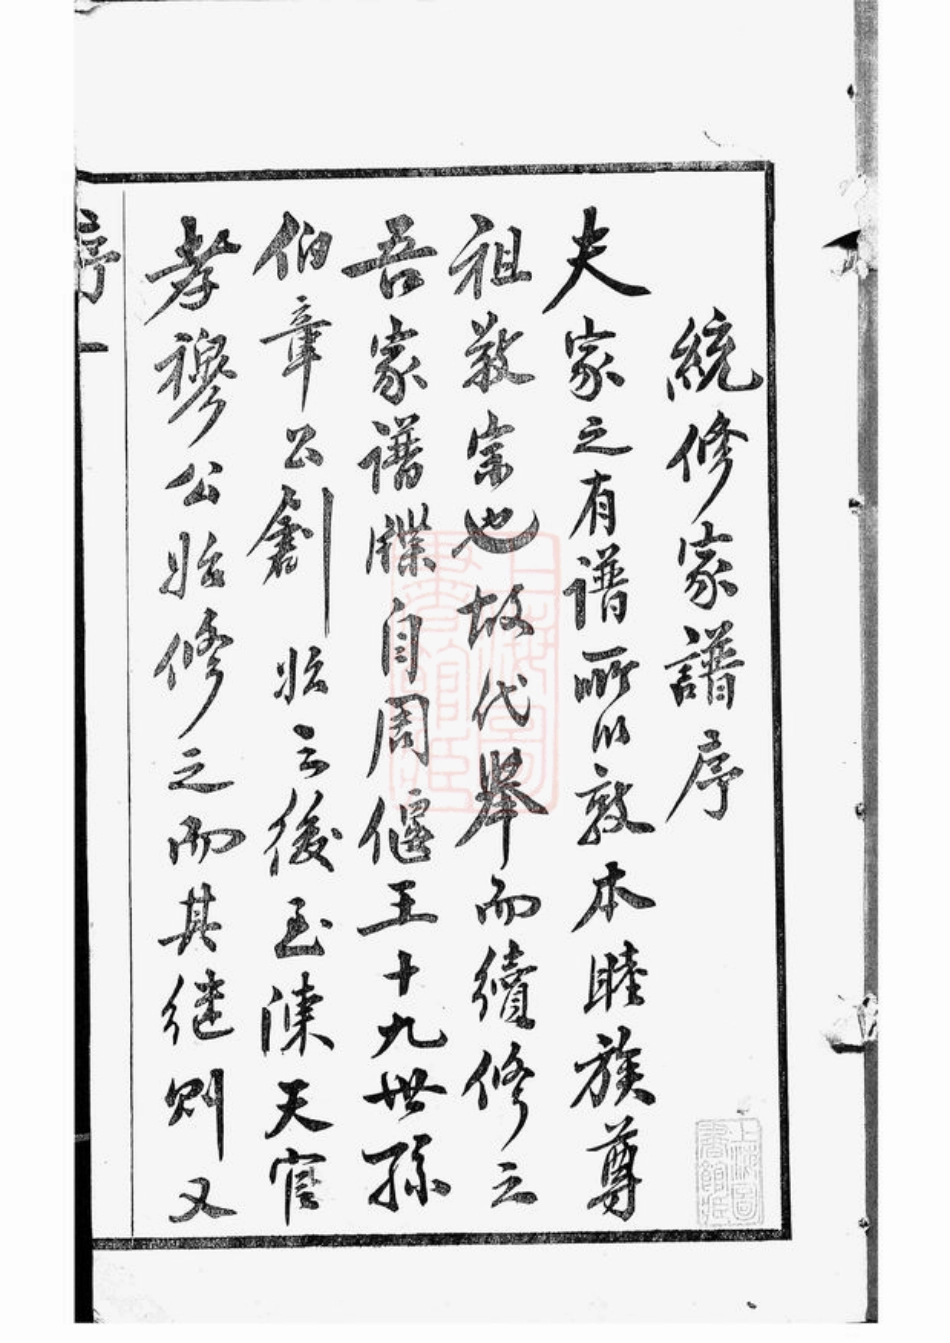 統修家譜序
夫家之有譜所以敦本睦族尊
祖敬宗也故代舉而續修之
吾家譜牒自周偃王十九世孫
伯章公創始之後至陳天官
孝穆公始修之而其繼則又
序 一
上海圖書館藏